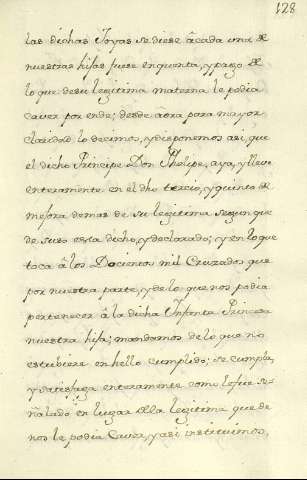 128
las dichas Joyas se diese â cada una de
nuestras hijas fuese en quenta, y pago de
lo que de su legitima materna le podia
caver por ende; desde aora para mayor
claridad lo decimos, y disponemos asi, que
el dicho Principe Don Phelipe, aya, y lleve
enteramente en el dho tercio, y quinto de
mejora demas de su legitima segun que
de suso esta dicho, y declarado; y en lo que
toca â los Docientos mil Cruzados que
por nuestra parte, y de lo que nos podia
pertenecer â la dicha Infanta Princesa
nuestra hija; mandamos de lo que no
estubiere en hello cumplido; se cumpla,
y satisfaga enteramente como le fue se-
ñalado en lugar de la legitima que de
nos le podia Caver, y asi instituimos,